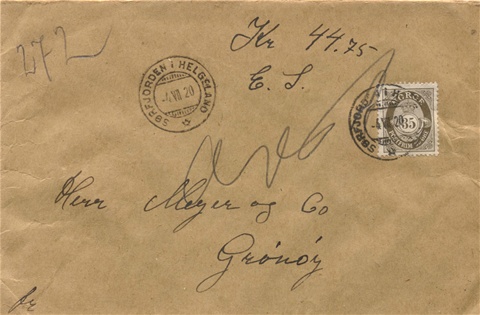 272
Kr 44.75
E. S.
SØRFJORDEN I HELGELAND
-4.VII.20
SØRFJORDEN I H
-4.VII.20
NORGE
35
Herr Meyer og Co
Grönöy
fr